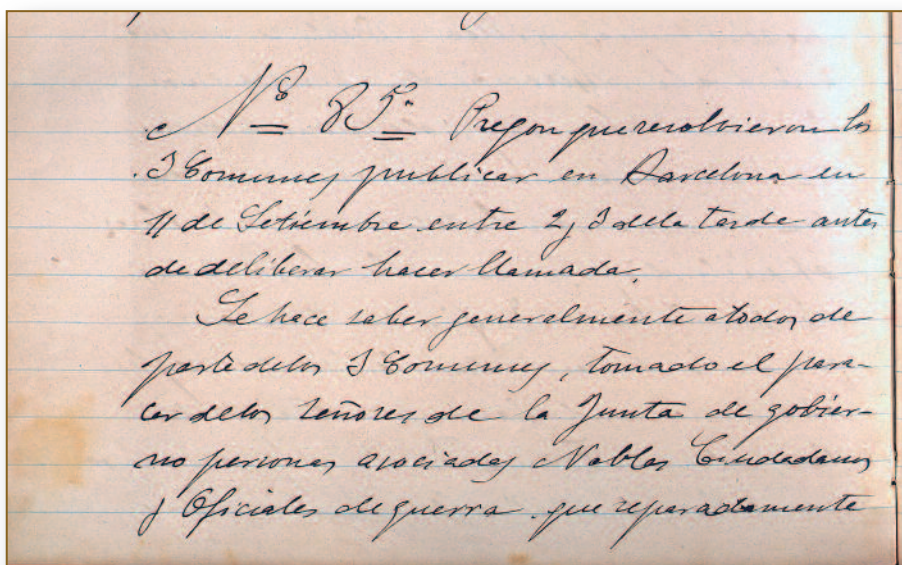 Nº 85º Pregon que resolvieron los
3 Comunes publicar en Barcelona en
11 de Setiembre entre 2 y 3 de la tarde antes
de deliberar hacer llamada.
Se hace saber generalmente a todos de
parte de los 3 Comunes, tomado el pare-
cer de los Señores de la Junta de gobier-
no personas asociadas Nobles Ciudadanos
y Oficiales de guerra que separadamente